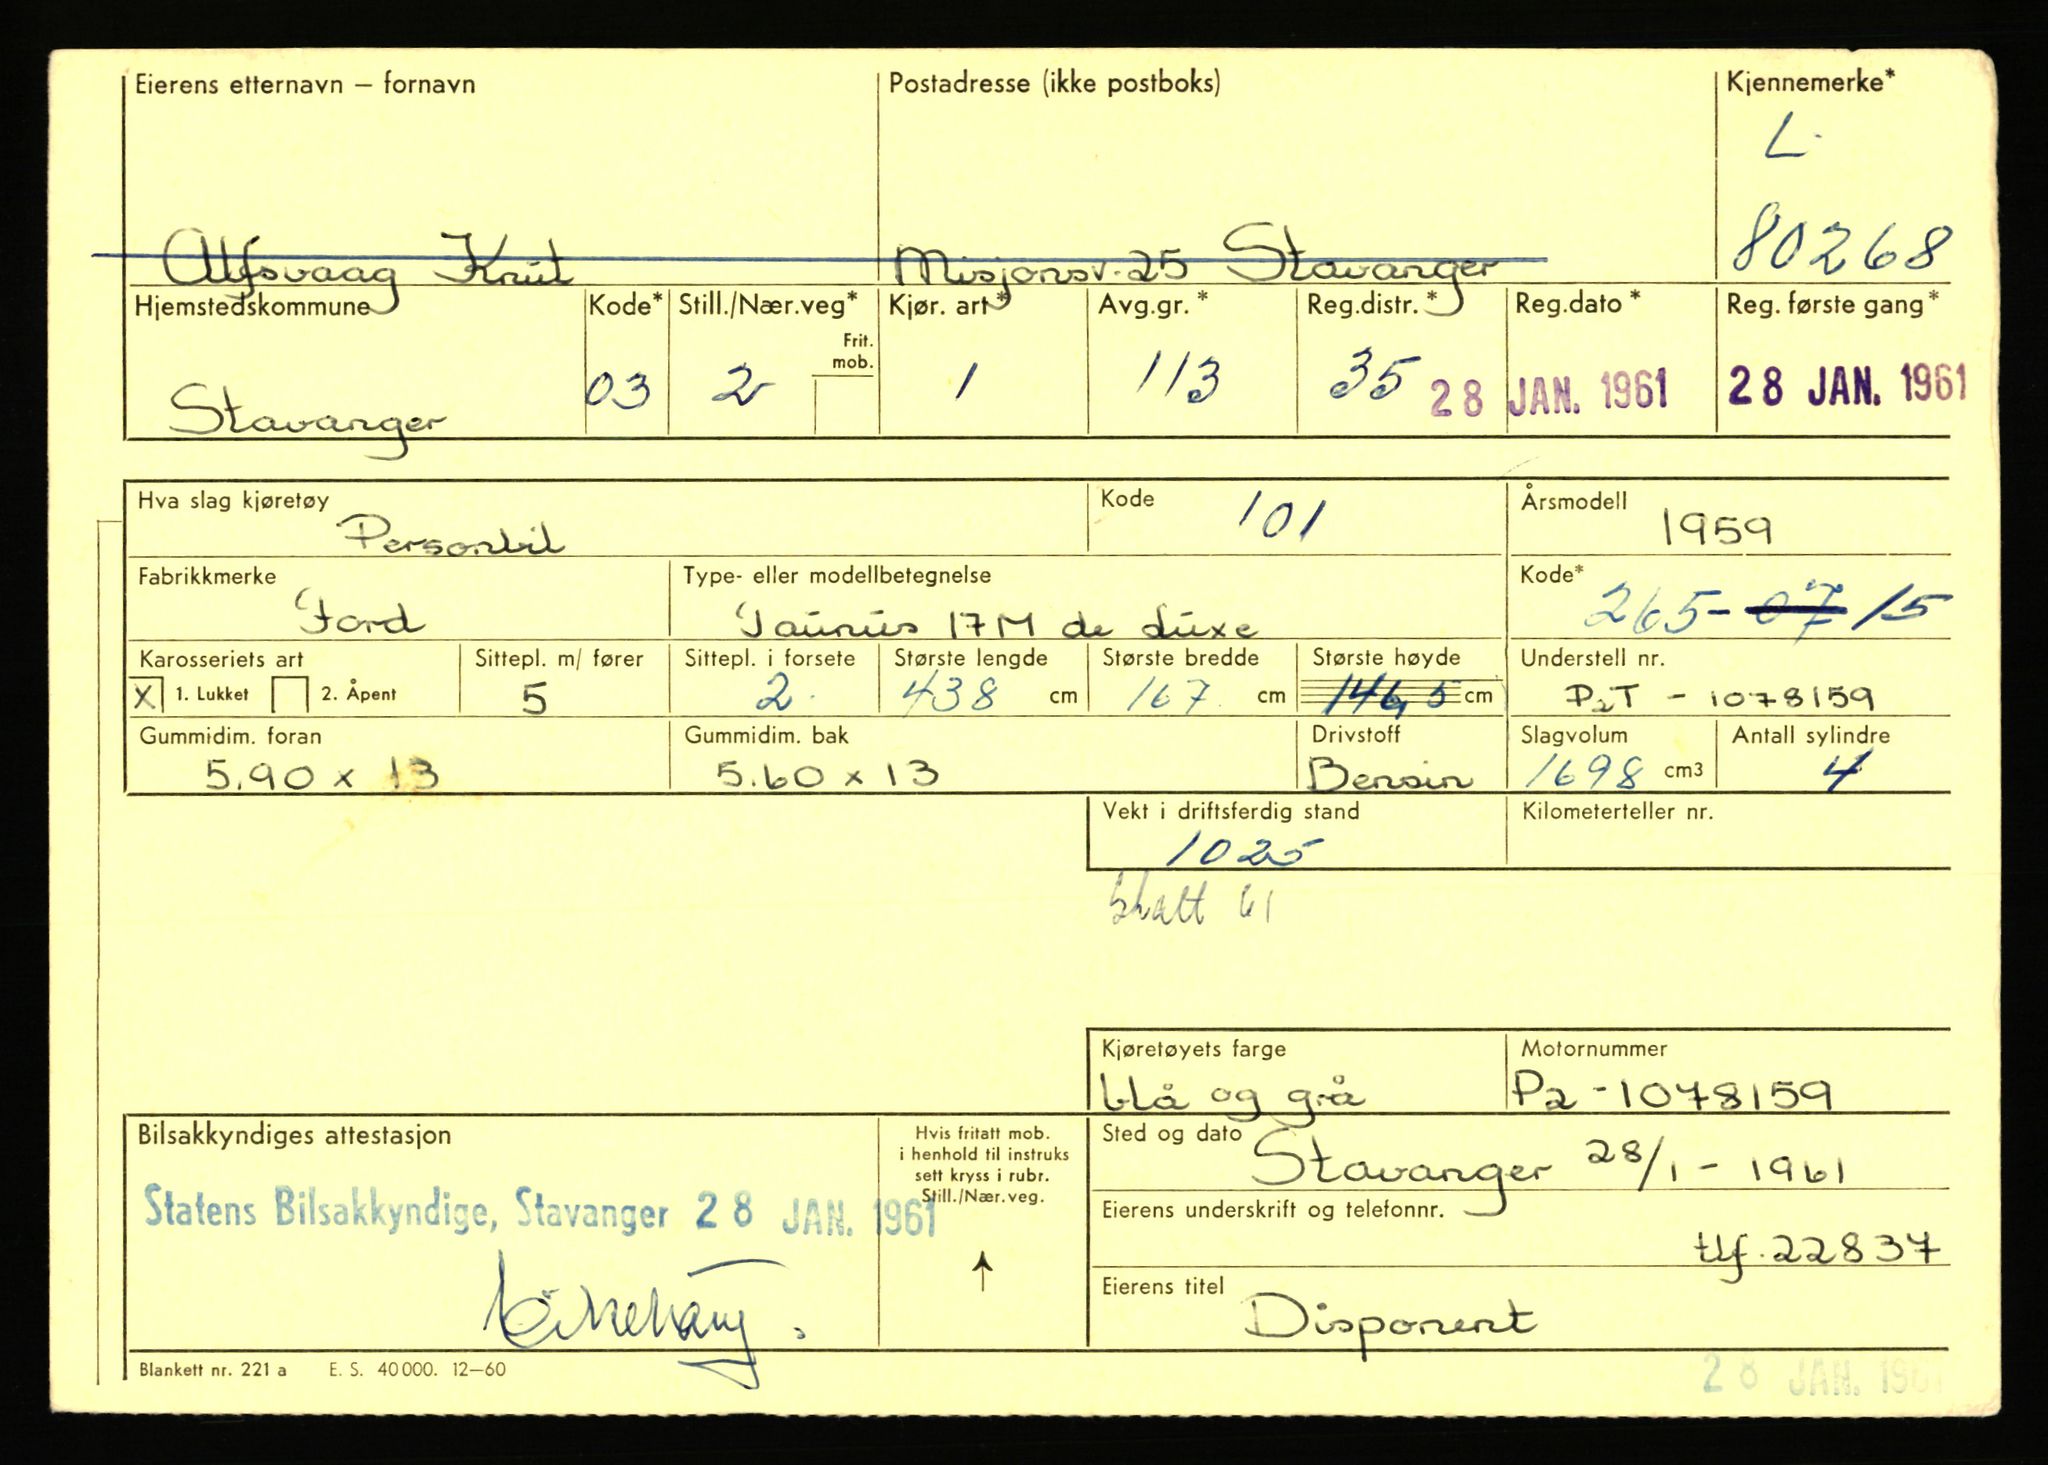 Eierens etternavn – fornavn Postadresse (ikke postboks) Kjennemerke*
L
80268
Alfsvaag Knut Misjonsv. 25 Stavanger
Hjemstedskommune Kode* Still./Nær.veg* Kjør. art* Avg.gr.* Reg.distr.* Reg.dato* Reg. første gang*
Frit.
mob.
Stavanger 03 2 1 113 35 28 JAN. 1961 28 JAN. 1961
Hva slag kjøretøy Kode Årsmodell
Personbil 101 1959
Fabrikkmerke Type- eller modellbetegnelse Kode*
Ford Taunus 17M de Luxe 265-07 15
Karosseriets art Sittepl. m/ fører Sittepl. i forsete Største lengde Største bredde Største høyde Understell nr.
X 1. Lukket 2. Åpent 5 2. 438 cm 167 cm 146,5 cm P2T - 1078159
Gummidim. foran Gummidim. bak Drivstoff Slagvolum Antall sylindre
5.90 x 13 5.60 x 13 Bensin 1698 cm3 4
Vekt i driftsferdig stand Kilometerteller nr.
1025
skatt 61
Kjøretøyets farge Motornummer
blå og grå P2-1078159
Bilsakkyndiges attestasjon Hvis fritatt mob.
i henhold til instruks
sett kryss i rubr.
Still./Nær.veg.
Sted og dato Stavanger 28/1 - 1961
Statens Bilsakkyndige, Stavanger 28 JAN. 1961
Eierens underskrift og telefonnr.
tlf. 22837
Eierens titel
Disponent
Blankett nr. 221 a E. S. 40000. 12–60
28 JAN. 1961